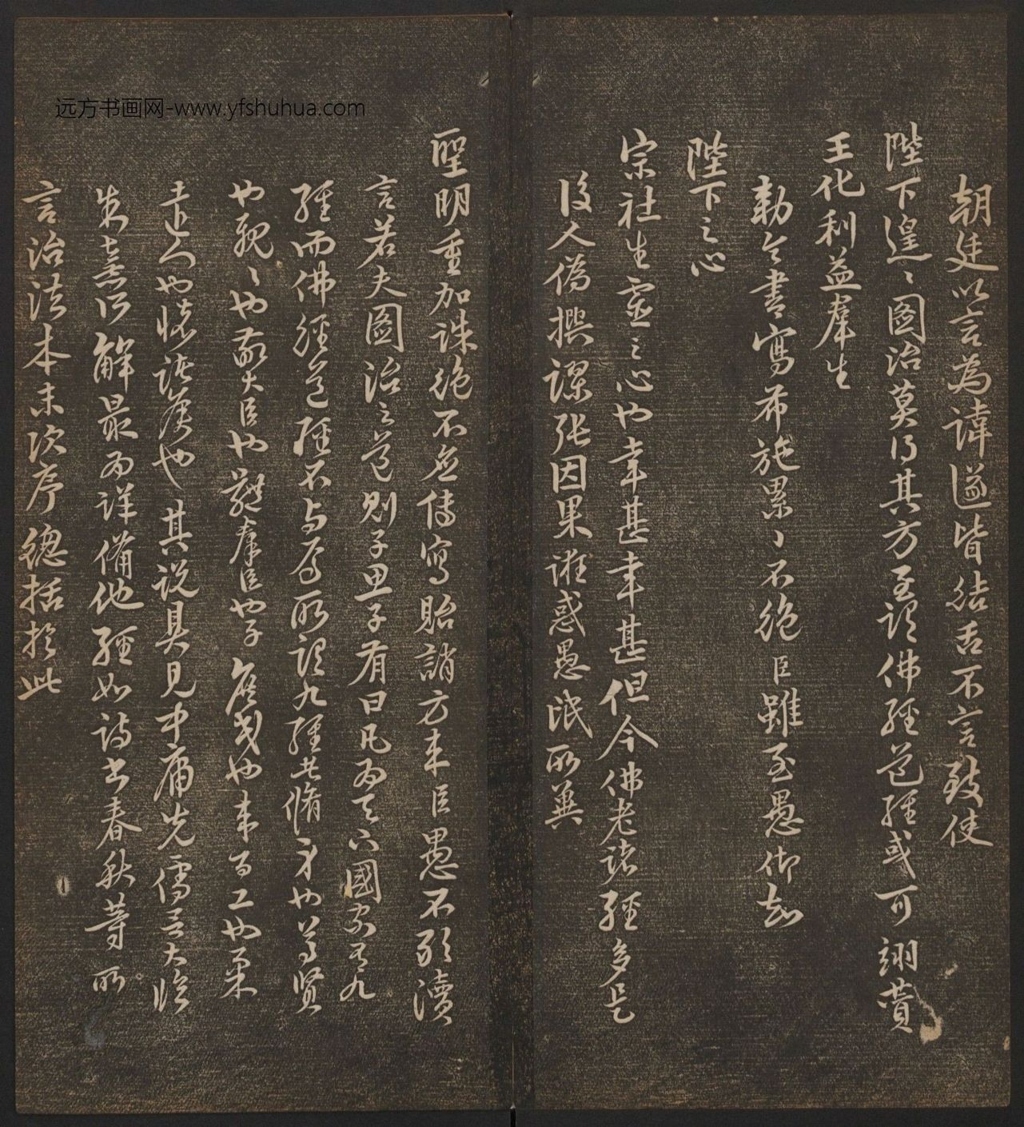 远方书画网-www.yfshuhua.com
朝廷以言為諱遂皆結舌不言致使
陛下遑〻圖治莫得其方至謂佛經道經或可翊贊
王化利益羣生
勅令書寫布施累〻不絕臣雖至愚仰知
陛下之心
宗社生靈之心也幸甚幸甚但今佛老諸經多是
後人偽撰謬张因果誑惑愚氓所冀
聖明重加誅絕不無傳寫貽誚方來臣愚不敢瀆
言若夫圖治之道則子思子有曰凡為天下國家有九
經而佛經道經不與焉所謂九經者脩身也尊賢
也親〻也敬大臣也體羣臣也子庶民也來百工也柔
遠人也懷諸侯也其說具見中庸先儒呂大臨
朱熹所解最為詳備他經如詩書春秋等所
言治法本末次序總括於此